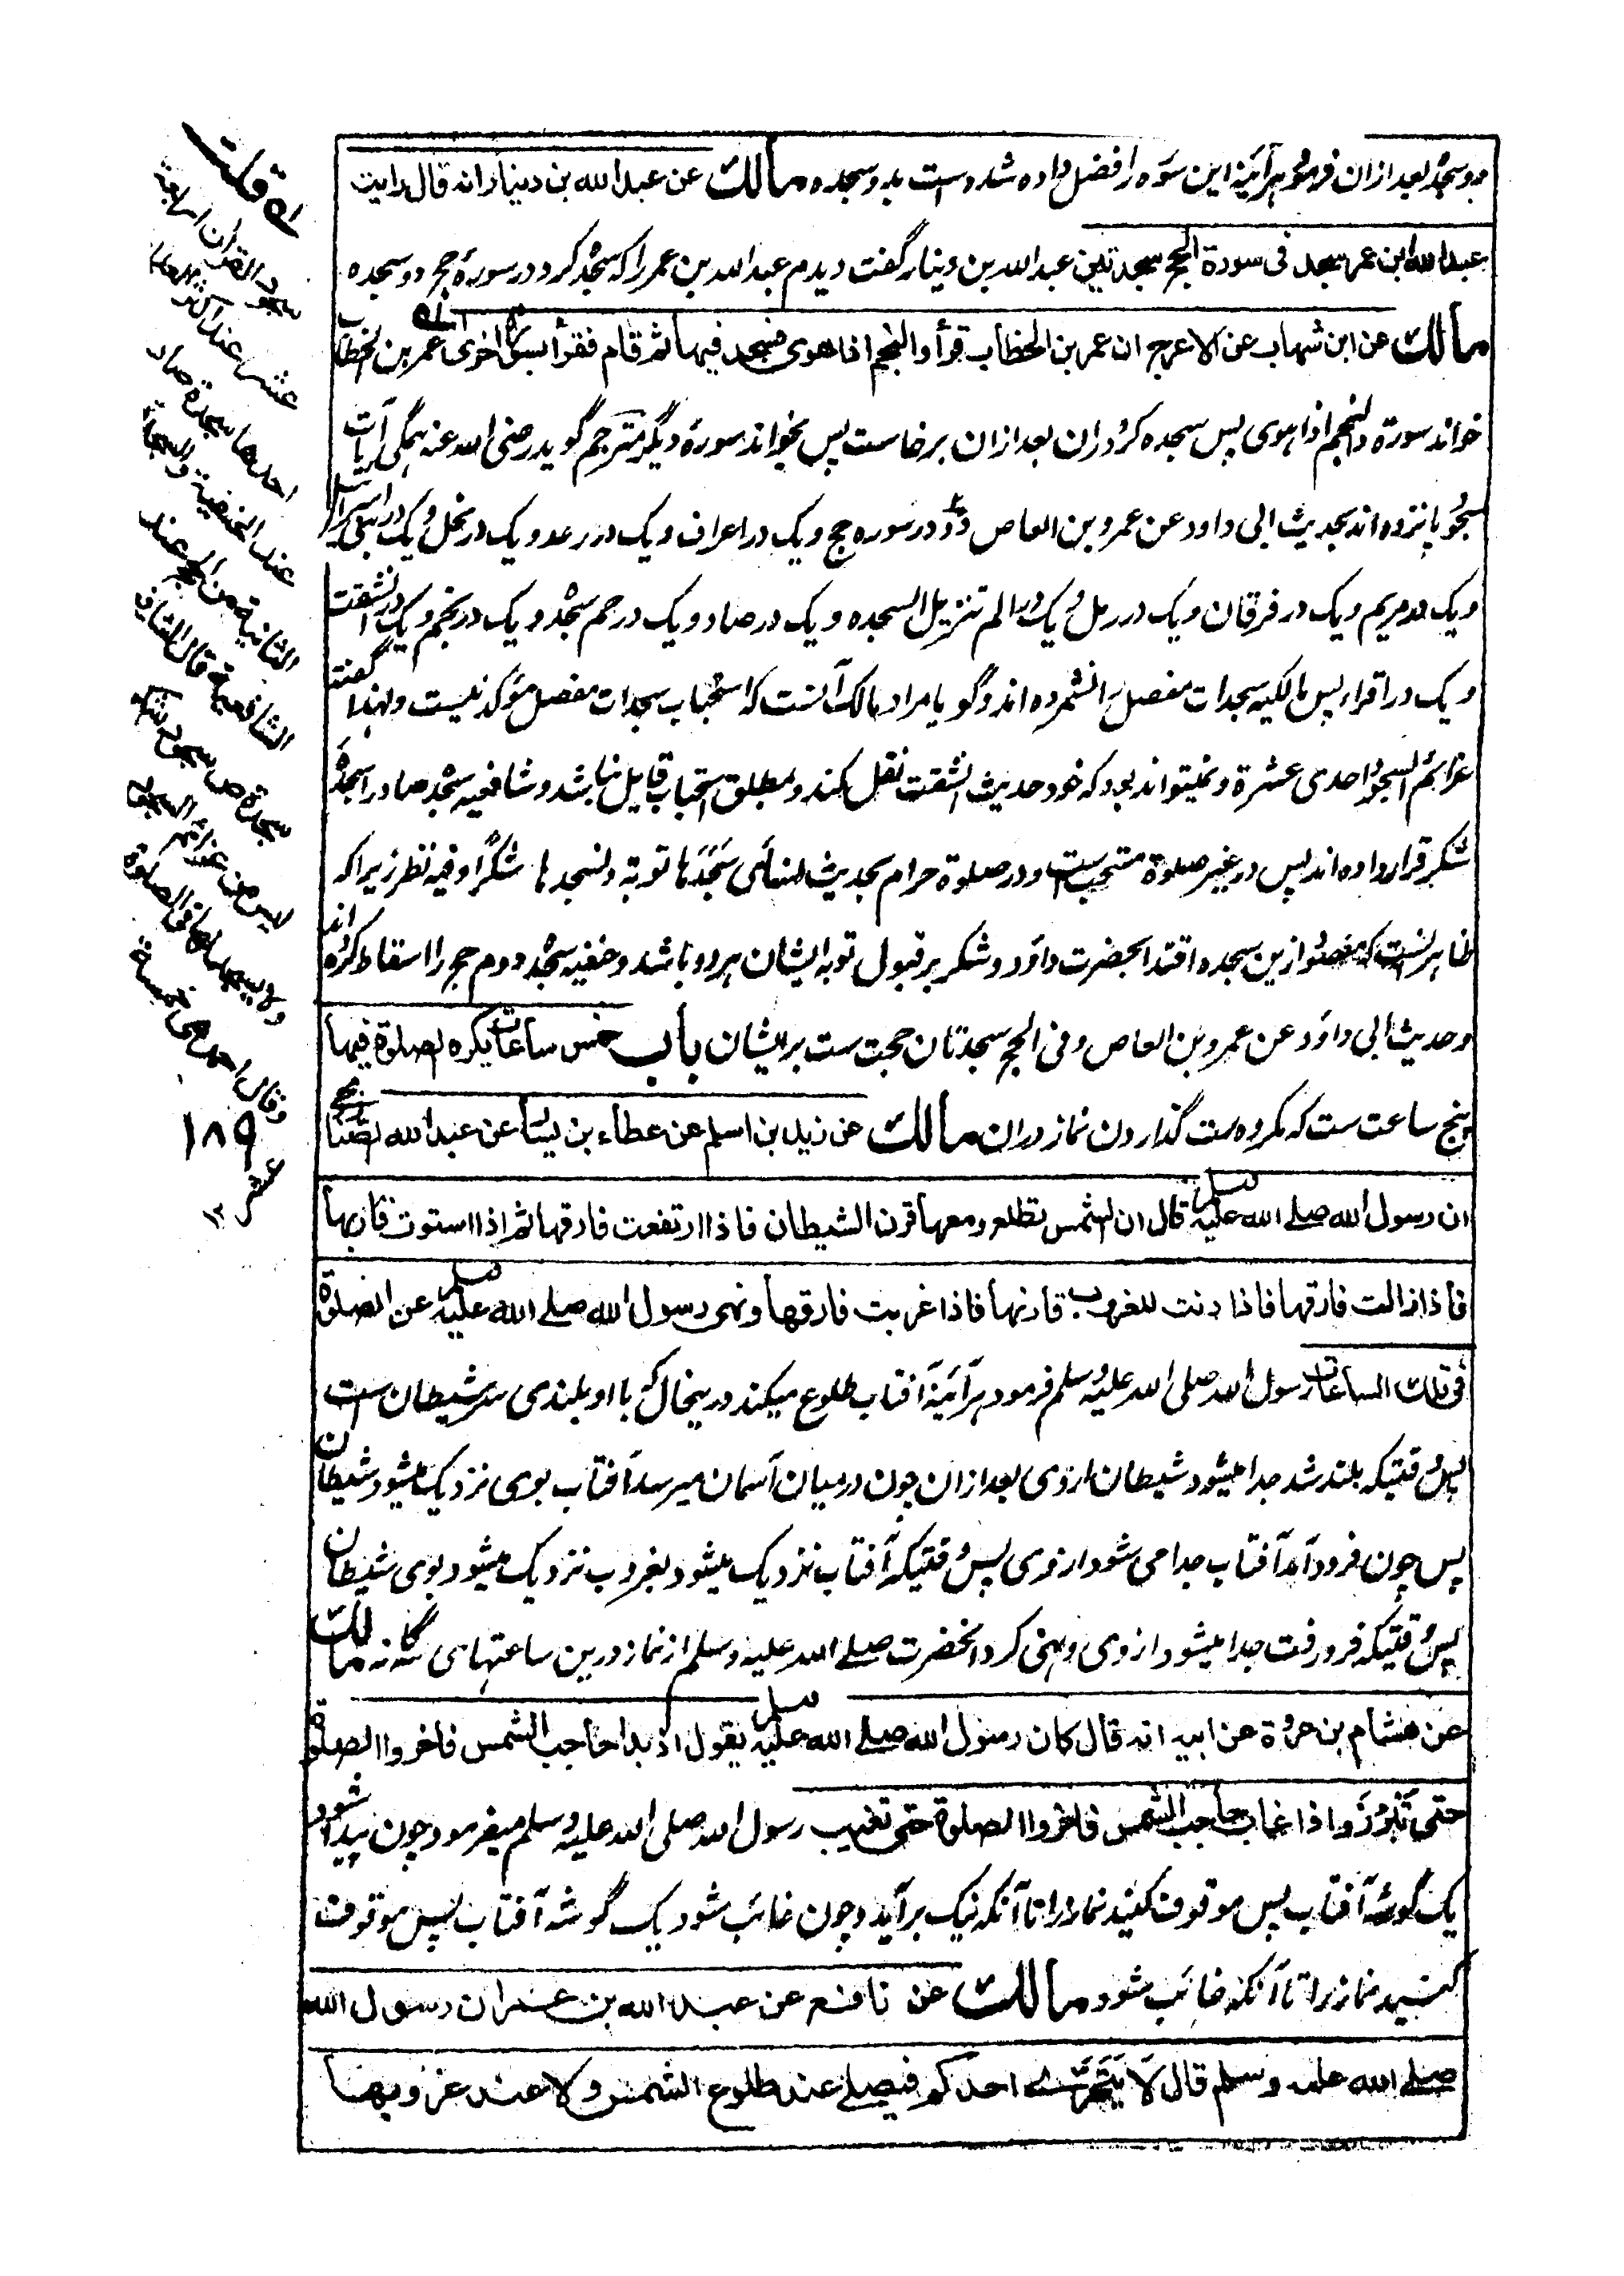 دو سجده بعد ازان فرمود هرآئینه این سوره را فضل داده شده است بدو سجده مالك عن عبد الله بن دینار انه قال رایت
عبد الله ابن عمر سجد فی سورة الحج سجدتین عبد الله بن دینار گفت دیدم عبد الله بن عمر را که سجده کرد در سورهٔ حج دو سجده
مالك عن ابن شهاب عن الاعرج ان عمر بن الخطاب قرأ والنجم اذا هوی فسجد فیها ثم قام فقرأ بسورة اخری عمر بن الخطاب
خواند سورة والنجم اذا هوی پس سجده کرد دران بعد ازان برخاست پس بخواند سورهٔ دیگر مترجم گوید رضی الله عنه همگی آیات
سجود پانزده اند بحدیث ابی داود عن عمرو بن العاص دو در سوره حج و یک در اعراف و یک در رعد و یک در نحل و یک در بنی اسرائیل
و یک در مریم و یک در فرقان و یک در نمل و یک در الم تنزیل السجده و یک در صاد و یک در حم سجده و یک در نجم و یک در انشقت
و یک در اقراء پس مالکیه سجدات مفصل را نشمرده اند و گویا مراد مالک آنست که استحباب سجدات مفصل مؤکد نیست ولهذا گفته
عزائم السجود احدی عشرة و نمیتواند بود که خود حدیث انشقت نقل کند و بمطلق استحباب قایل نباشد و شافعیه سجده صاد را سجدهٔ
شکر قرار داده اند پس در غیر صلوة مستحب است و در صلوة حرام بحدیث النسائی سجدها توبة ونسجدها شکرًا وفیه نظر زیرا که
ظاهر آنست که مقصود ازین سجده اقتدا بحضرت داود و شکر بر قبول توبه ایشان هر دو باشد و حنفیه سجده دوم حج را اسقاط کرده اند
و حدیث ابی داود عن عمرو بن العاص وفی الحج سجدتان حجت ست بر ایشان باب خمس ساعات یکره الصلوة فیها
پنج ساعت ست که مکروه ست گذاردن نماز دران مالك عن زید بن اسلم عن عطاء بن یسار عن عبد الله الصنابحی
ان رسول الله صلی الله علیه وسلم قال ان الشمس تطلع ومعها قرن الشیطان فاذا ارتفعت فارقها ثم اذا استوت قارنها
فاذا زالت فارقها فاذا دنت للغروب قارنها فاذا غربت فارقها ونهی رسول الله صلی الله علیه وسلم عن الصلوة
فی تلك الساعات رسول الله صلی الله علیه وسلم فرمود هرآئینه آفتاب طلوع میکند در ینحال که با او بلندی سر شیطان است
پس وقتیکه بلند شد جدا میشود شیطان از وی بعد ازان چون در میان آسمان میرسد آفتاب بوی نزدیک میشود شیطان
پس چون فرود آمد آفتاب جدا می شود از وی پس وقتیکه آفتاب نزدیک میشود بغروب نزدیک میشود بوی شیطان
پس وقتیکه فرو رفت جدا میشود از وی و نهی کرد آنحضرت صلی الله علیه وسلم از نماز درین ساعتهای سه گانه مالك
عن هشام بن عروة عن ابیه انه قال کان رسول الله صلی الله علیه وسلم یقول اذ بدا حاجب الشمس فاخروا الصلوة
حتی تبرز واذا غاب حاجب الشمس فاخروا الصلوة حتی تغیب رسول الله صلی الله علیه وسلم میفرمود چون پیدا شود
یک گوشه آفتاب پس موقوف کنید نماز را تا آنکه نیک برآید و چون غائب شود یک گوشه آفتاب پس موقوف
کنید نماز را تا آنکه غائب شود مالك عن نافع عن عبد الله بن عمر ان رسول الله
صلی الله علیه وسلم قال لا یتحری احدکم فیصلی عند طلوع الشمس ولا عند غروبها
له قلت
سجود القرآن اربعة
عشر عند اکثر العلماء
احدها سجدة صاد
عند الحنفیة والسجدة
الثانیة من الحج عند
الشافعیة قال الشافعی
سجدة ص سجود شکر
لیس من عزائم السجود
ولا یسجدها فی الصلوة
وقال احمد هی خمسة
عشر ۱۲
۱۸۹